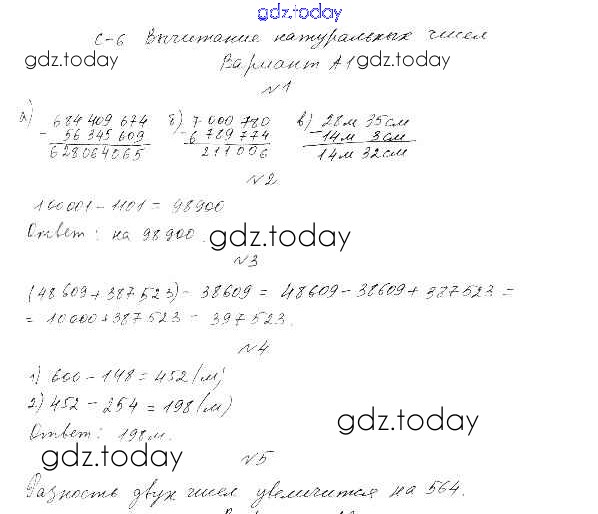 gdz.today
С-6 Вычитание натуральных чисел
gdz.today Вариант А1 gdz.today
№1
а) б) в)
684 409 674 7 000 780 28м 35см
- 56 345 609 - 6 789 774 - 14м 3см
628064065 211006 14м 32см
№2
100001 - 1101 = 98900
Ответ: на 98900. gdz.today
№3
(48609 + 387523) - 38609 = 48609 - 38609 + 387523 =
= 10000 + 387523 = 397523.
№4
1) 600 - 148 = 452 (м)
2) 452 - 254 = 198 (м)
gdz.today
Ответ: 198м.
gdz.today №5
Разность двух чисел увеличится на 564.